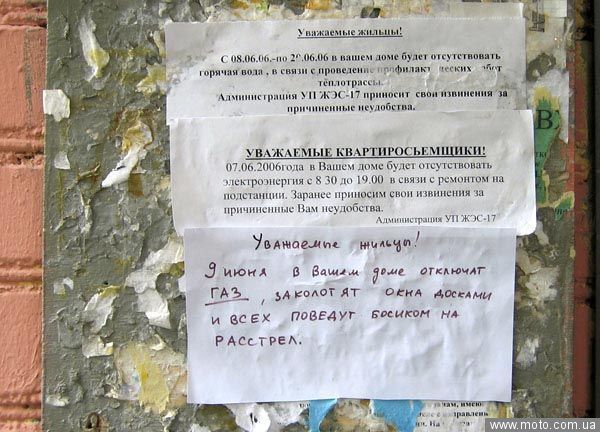 Уважаемые жильцы!
С 08.06.06.-по 20.06.06 в вашем доме будет отсутствовать
горячая вода , в связи с проведение профилактических работ
тёплотрассы.
Администрация УП ЖЭС-17 приносит свои извинения за
причиненные неудобства.
УВАЖАЕМЫЕ КВАРТИРОСЬЕМЩИКИ!
07.06.2006года в Вашем доме будет отсутствовать
электроэнергия с 8 30 до 19.00 в связи с ремонтом на
подстанции. Заранее приносим свои извинения за
причиненные Вам неудобства.
Администрация УП ЖЭС-17
Уважаемые жильцы!
9 июня в Вашем доме отключат
ГАЗ , заколотят окна досками
и всех поведут босиком на
РАССТРЕЛ.
В
www.moto.com.ua